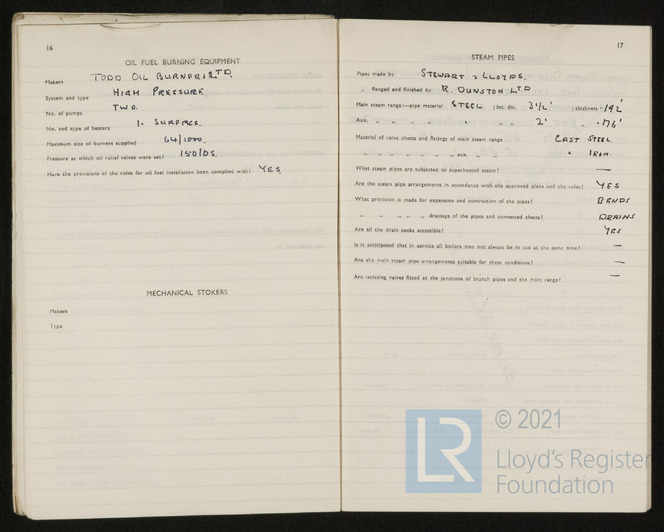 16
OIL FUEL BURNING EQUIPMENT
Makers TODD OIL BURNERS LTD.
System and type HIGH PRESSURE.
No. of pumps TWO.
No. and type of heaters 1 - SURFACE.
Maximum size of burners supplied 64/1000.
Pressure at which oil relief valves were set? 150 lbs.
Have the provisions of the rules for oil fuel installation been complied with? YES
MECHANICAL STOKERS
Makers
Type
17
STEAM PIPES
Pipes made by STEWART & LLOYDS.
„ flanged and finished by R. DUNSTON LTD
Main steam range:—pipe material STEEL ; int. dia. 3½" ; thickness ·192"
Aux. „ „ „ „ „ 2" „ ·176"
Material of valve chests and fittings of main steam range CAST STEEL
„ „ „ „ „ „ aux. „ „ " IRON.
What steam pipes are subjected to superheated steam? —
Are the steam pipe arrangements in accordance with the approved plans and the rules? YES
What provision is made for expansion and contraction of the pipes? BENDS
„ „ „ „ „ drainage of the pipes and connected chests? DRAINS
Are all the drain cocks accessible? YES
Is it anticipated that in service all boilers may not always be in use at the same time? —
Are the main steam pipe arrangements suitable for these conditions? —
Are isolating valves fitted at the junctions of branch pipes and the main range? —
LR © 2021
Lloyd's Register
Foundation